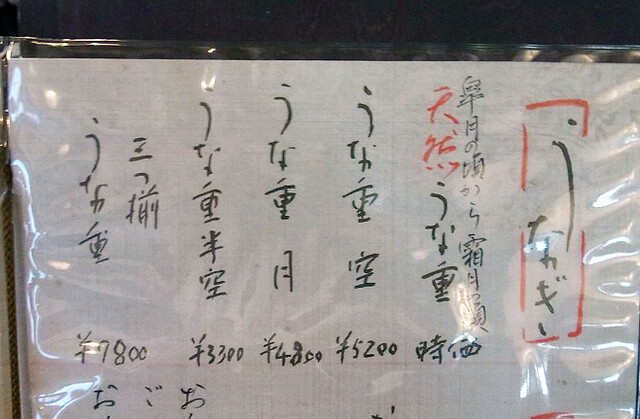 うなぎ
皐月の頃から霜月頃
天然うな重 時価
うな重 空 ¥5200
うな重 月 ¥4800
うな重半空 ¥3300
三つ揃
うな重 ¥7800
お
ご
お